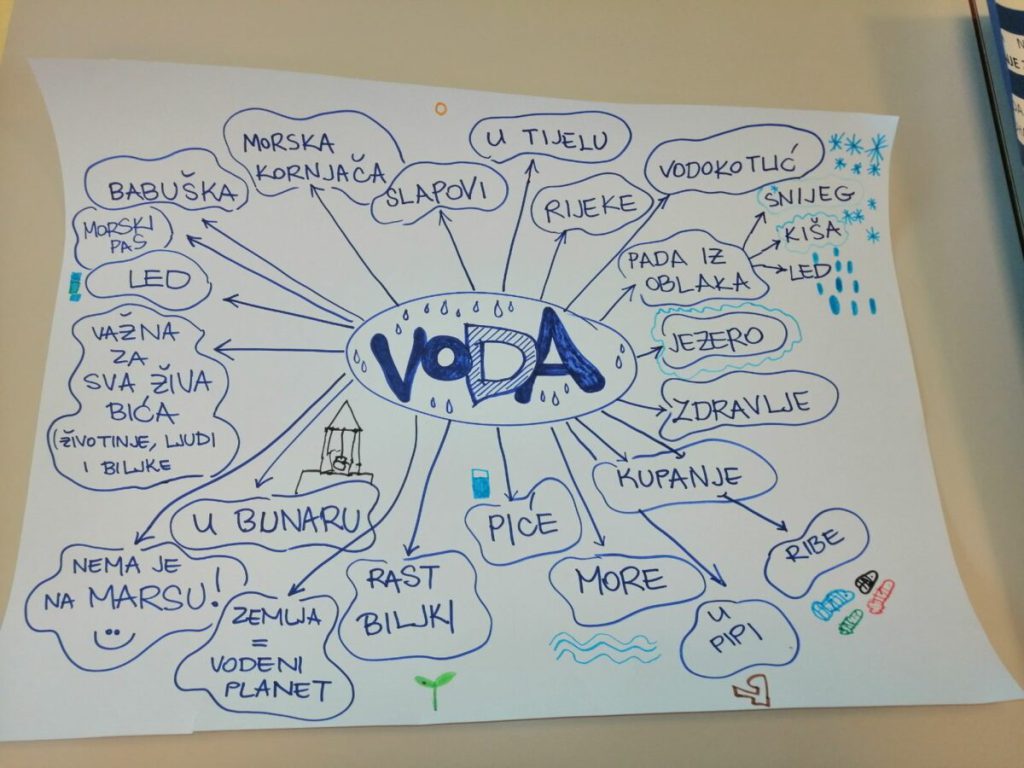 VODA
BABUŠKA
MORSKI
PAS
LED
VAŽNA
ZA
SVA ŽIVA
BIĆA
(ŽIVOTINJE, LJUDI
I BILJKE
MORSKA
KORNJAČA
SLAPOVI
U TIJELU
RIJEKE
VODOKOTLIĆ
PADA IZ
OBLAKA
SNIJEG
KIŠA
LED
JEZERO
ZDRAVLJE
KUPANJE
RIBE
U
PIPI
MORE
PIĆE
RAST
BILJKI
ZEMLJA
=
VODENI
PLANET
U BUNARU
NEMA JE
NA MARSU!